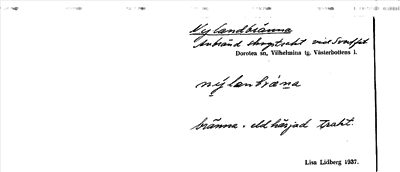 Nylandbränna
Avbränd skogstrakt vid
Dorotea sn, Vilhelmina tg, Västerbottens l.
bränna = eldhärjad trakt.
Lisa Lidberg 1937.